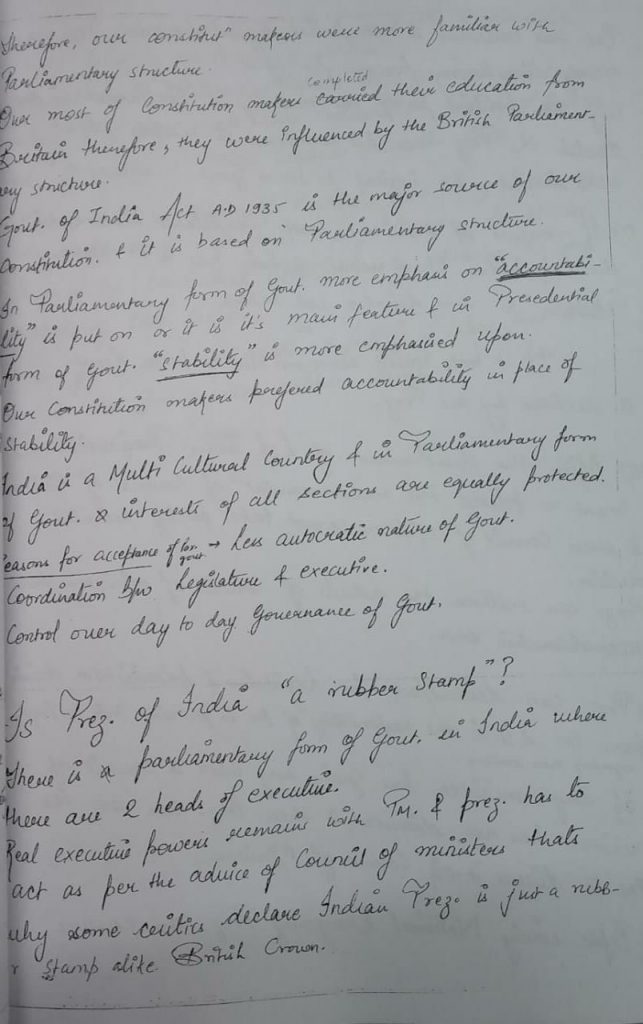 Therefore, our constitutn makers were more familiar with
Parliamentary structure.
Our most of Constitution makers completed carried their education from
Britain therefore, they were influenced by the British Parliament-
ary structure.
Gout. of India Act A.D 1935 is the major source of our
Constitution. & it is based on Parliamentary structure.
In Parliamentary form of Gout. more emphasis on "accountabi-
lity" is put on or it is it's main feature & in Presedential
form of Gout. "stability" is more emphasised upon.
Our Constitution makers prefered accountability in place of
Stability.
India is a Multi Cultural Country & in Parliamentary form
of Gout. interests of all sections are equally protected.
easons for acceptance of gout → Less autocratic nature of Gout.
Coordination b/w Legislature & executive.
Control over day to day Governance of Gout.
Is Prez. of India "a rubber Stamp"?
There is a parliamentary form of Gout. in India where
there are 2 heads of executive.
Real executive powers remains with PM. & prez. has to
act as per the advice of Council of ministers thats
why some critics declare Indian Prez. is just a rubb-
r Stamp alike British Crown.